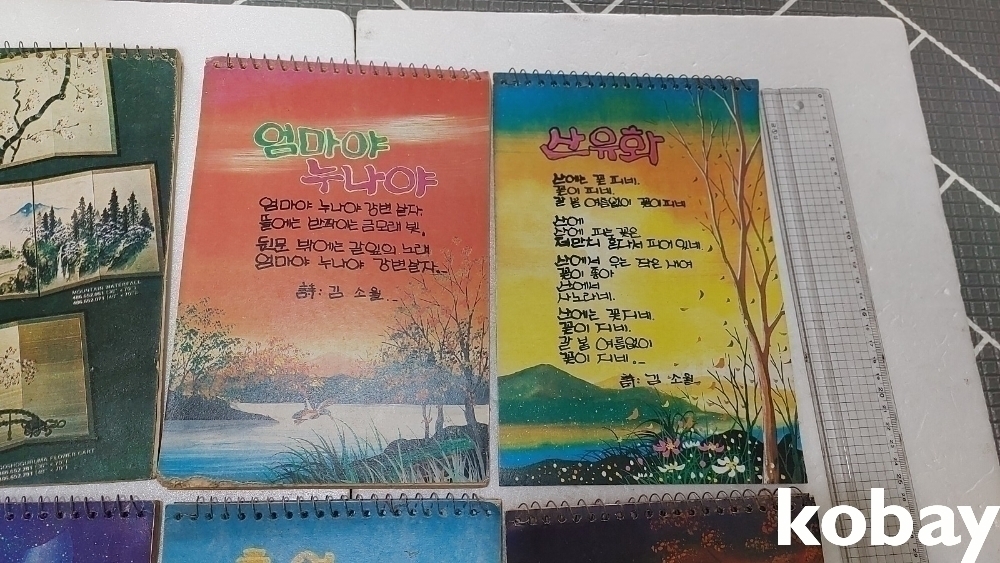 MOUNTAIN WATERFALL
엄마야
누나야
엄마야 누나야 강변 살자.
뜰에는 반짝이는 금모래 빛,
뒷문 밖에는 갈잎의 노래
엄마야 누나야 강변살자...
詩: 김 소월..
산유화
산에는 꽃 피네.
꽃이 피네.
갈 봄 여름없이 꽃이피네
산에
산에 피는 꽃은
저만치 혼자서 피어 있네.
산에서 우는 작은 새여
꽃이 좋아
산에서
사노라네.
산에는 꽃지네.
꽃이 지네.
갈 봄 여름없이
꽃이 지네..
詩: 김 소월
FLOWER CART
kobay